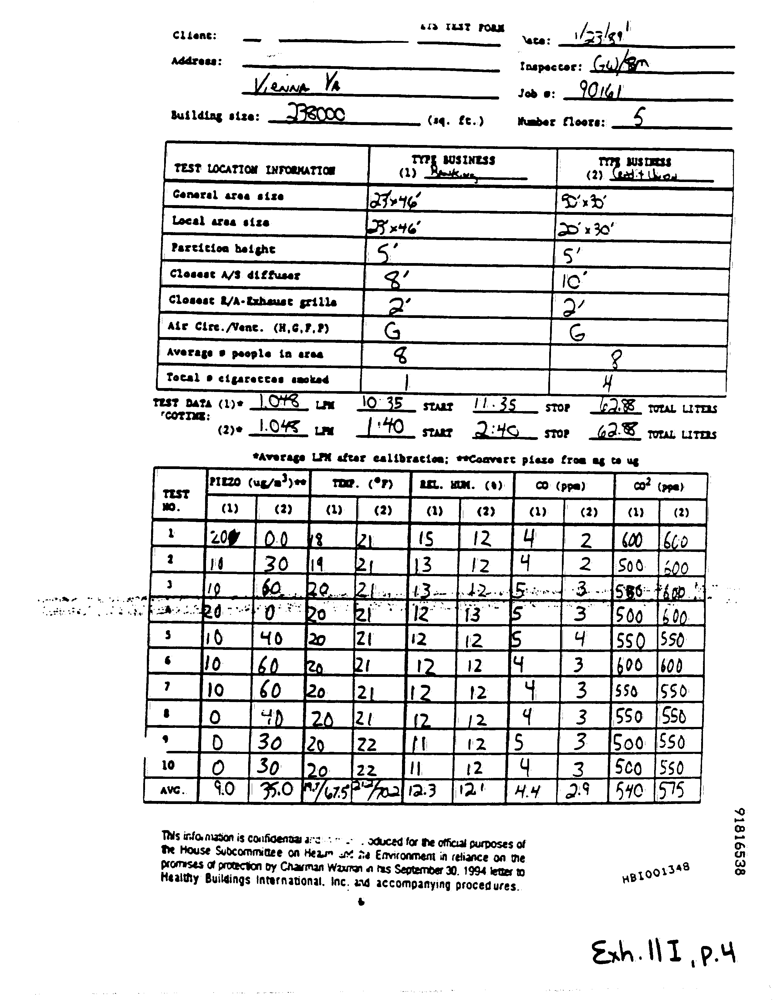 ETS TEST FORM
Client: Date: 1/23/89
Address: Inspector: GW/BM
Vienna VA Job #: 90161
Building size: 238000 (sq. ft.) Number floors: 5
TEST LOCATION INFORMATION TYPE BUSINESS (1) Banking TYPE BUSINESS (2) Credit Union
General area size 23'x46' x30'
Local area size 23'x46' 20'x30'
Partition height 5' 5'
Closest A/S diffuser 8' 10'
Closest R/A-Exhaust grille 2' 2'
Air Circ./Vent. (H,G,F,P) G G
Average # people in area 8 8
Total # cigarettes smoked 1 4
TEST DATA (1)* 1.048 LPM 10:35 START 11:35 STOP 62.88 TOTAL LITERS
GOTINE:
(2)* 1.048 LPM 1:40 START 2:40 STOP 62.88 TOTAL LITERS
*Average LPM after calibration; **Convert piezo from mg to ug
TEST NO. PIEZO (ug/m3)** TEMP. (°F) REL. HUM. (%) CO (ppm) CO2 (ppm)
(1) (2) (1) (2) (1) (2) (1) (2) (1) (2)
1 20 0.0 18 21 15 12 4 2 600 600
2 10 30 19 21 13 12 4 2 500 600
3 10 60 20 21 13 12 5 3 600
4 20 0 20 21 12 13 5 3 500 600
5 10 40 20 21 12 12 5 4 550 550
6 10 60 20 21 12 12 4 3 600 600
7 10 60 20 21 12 12 4 3 550 550
8 0 40 20 21 12 12 4 3 550 550
9 0 30 20 22 11 12 5 3 500 550
10 0 30 20 22 11 12 4 3 500 550
AVG. 9.0 35.0 19.7/67.5 21.2/70.2 12.3 12.1 4.4 2.9 540 575
This information is confidential and produced for the official purposes of
the House Subcommittee on Health and the Environment in reliance on the
promises of protection by Chairman Waxman in his September 30, 1994 letter to
Healthy Buildings International, Inc. and accompanying procedures.
HBI001348
91816538
6
Exh. 11 I, p.4